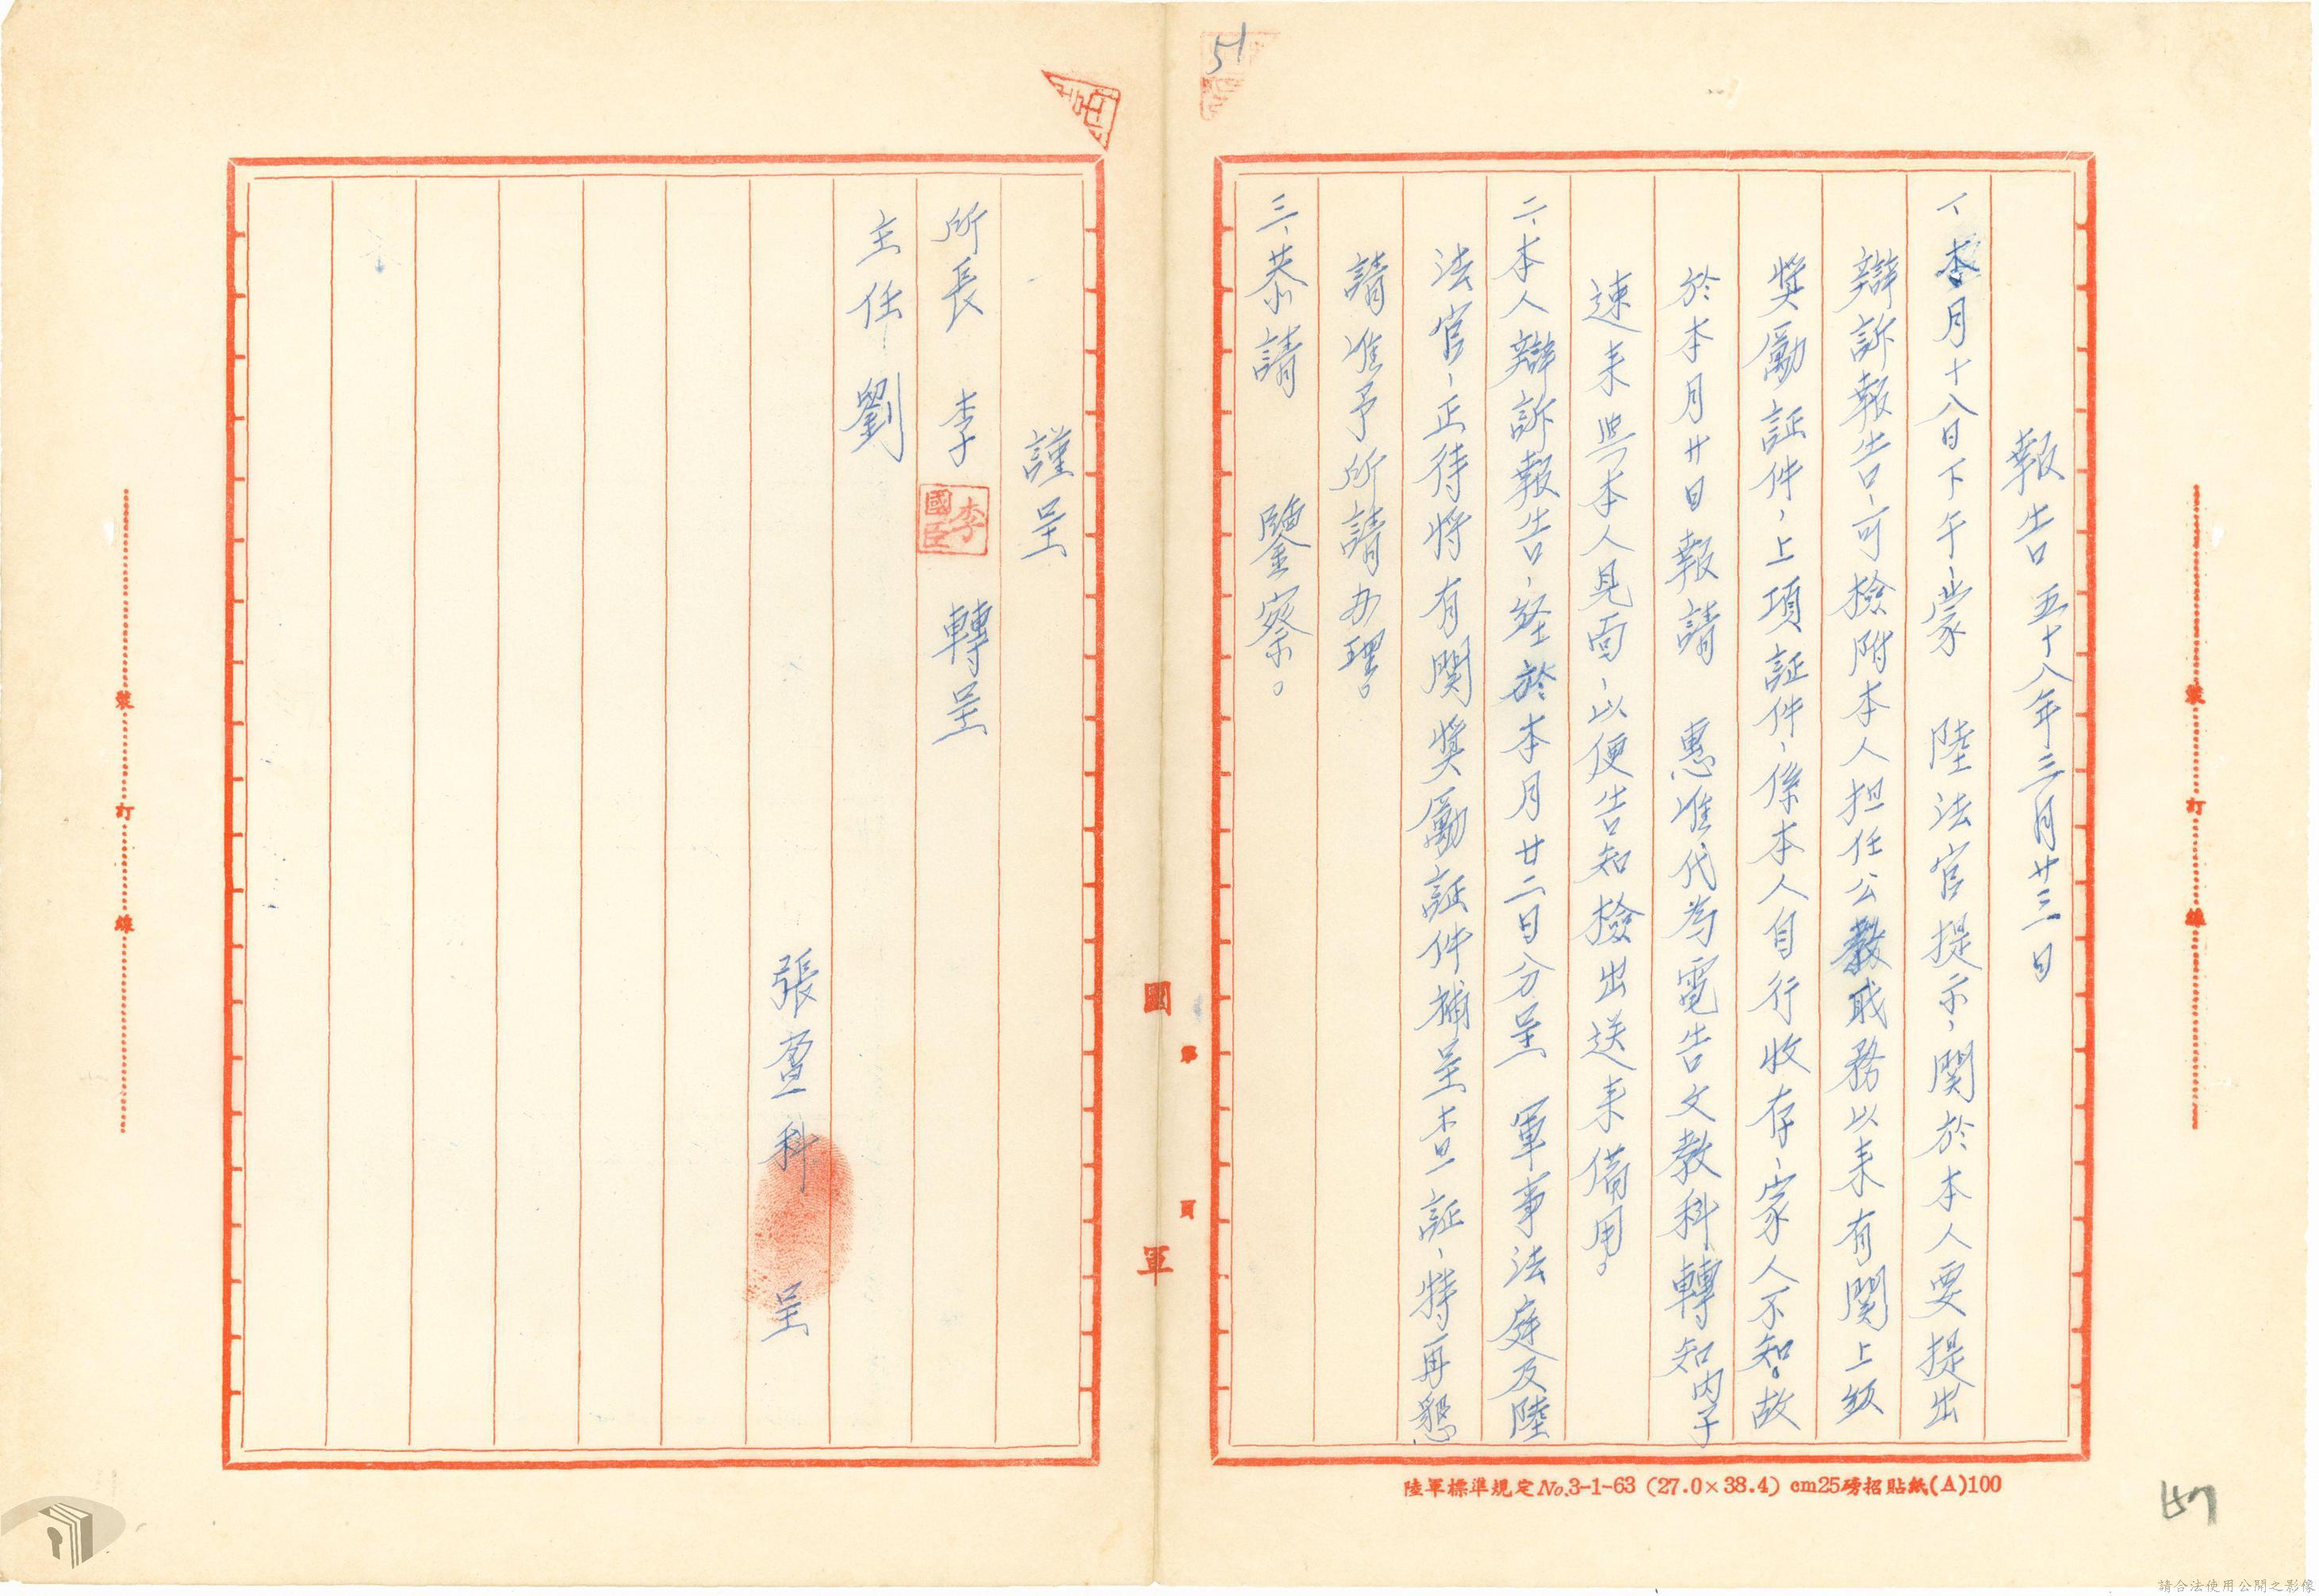 報告 五十八年三月廿三日
一、本月十八日下午、蒙 陸法官提示，関於本人要提出
辯訴報告、可檢附本人担任公教职務以来有関上级
獎勵証件，上項証件、係本人自行收存、家人不知。故
於本月廿日報請 惠准代為電告文教科轉知内子
速来與本人見面、以便告知檢出送来備用。
二、本人辯訴報告、経於本月廿二日分呈 軍事法庭及陸
法官、正待将有関獎勵証件補呈查証、特再懇
請准予所請办理。
三、恭請 鑒察。
謹呈
所長 李 轉呈
李國臣
主任 劉
張盈科 呈
裝 訂 線
裝 訂 線
國 軍
第 頁
陸軍標準規定No.3-1-63 (27.0×38.4) cm25磅招貼紙(A)100
51
請合法使用公開之影像